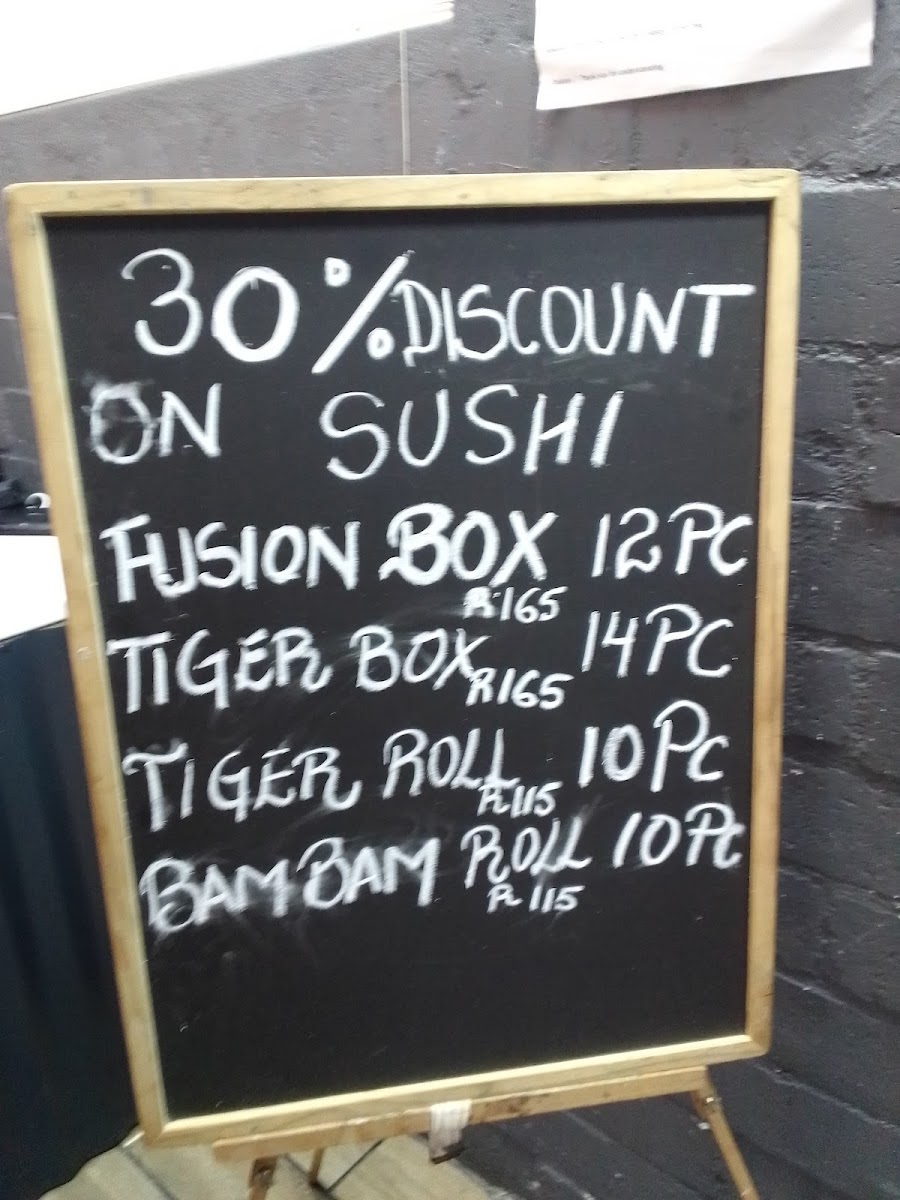 30% DISCOUNT
ON SUSHI
FUSION BOX 12PC
R165
TIGER BOX 14PC
R165
TIGER ROLL 10PC
R115
BAMBAM ROLL 10PC
R115